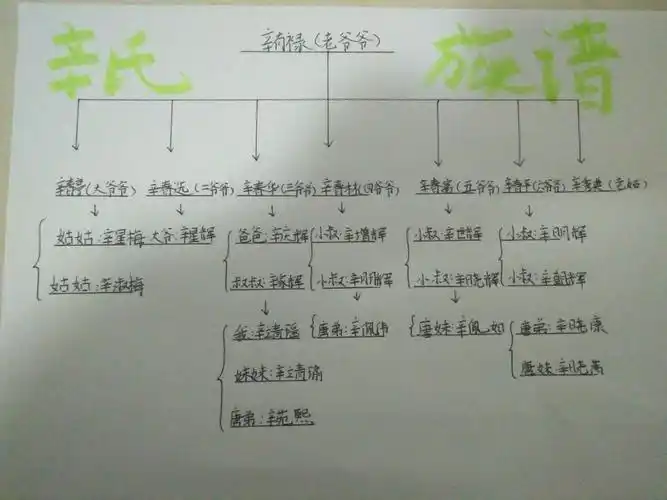 辛氏 族谱
辛尚禄(老爷爷)
辛春亭(大爷爷) 辛春远(二爷爷) 辛春华(三爷爷) 辛春林(四爷爷) 辛春富(五爷爷) 辛春平(六爷爷) (老姑)
姑姑:辛星梅 大爷:辛星辉 爸爸:辛庆辉 小叔:辛增辉 小叔:辛世辉 小叔:辛明辉
姑姑:辛淑梅 叔叔:辛家辉 小叔:辛朋辉 小叔:辛晓辉 小叔:辛朝辉
我:辛靖瑶 唐弟:辛佩伟 唐妹:辛佩如 唐弟:辛晓康
妹妹:辛靖瑜 唐妹:
唐弟:辛苑熙